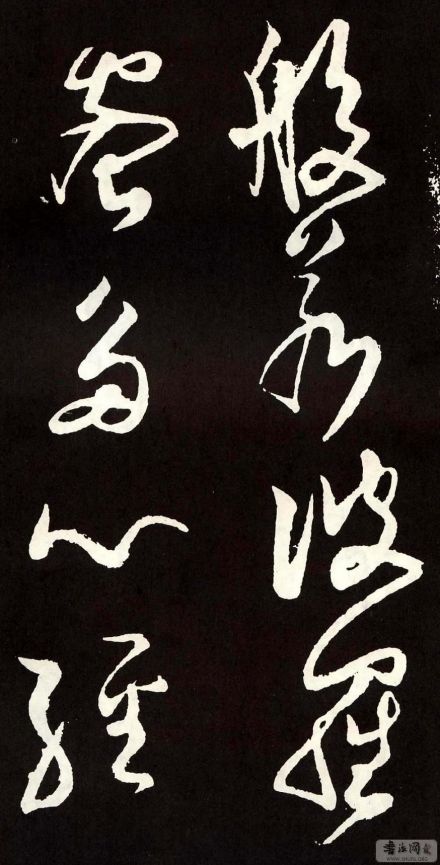 般若波羅
蜜多心經
书法网